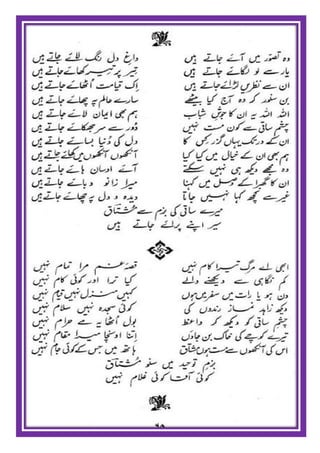 وہ تصوّر میں آئے جاتے ہیں داغِ دل رنگ لائے جاتے ہیں
یار سے لو لگائے جاتے ہیں تیر پر تیر کھائے جاتے ہیں
ان سے نظریں لڑائے جاتے ہیں اِک قیامت اُٹھائے جاتے ہیں
بن سنور کر وہ آج کیا بیٹھے سارے عالم پہ چھائے جاتے ہیں
اللہ اللہ یہ ان کا حسنِ شباب ہم بھی ایمان لائے جاتے ہیں
چشمِ ساقی سے کون مست نہیں دُور سے سر جھکائے جاتے ہیں
ان کے در تک یہاں گزر کس کا دل کی دُنیا بسائے جاتے ہیں
ہم بھی ان کے خیال میں کیا کیا آنکھوں آنکھوں میں جاتے ہیں
وہ مجھے دیکھ ہی نہیں سکتے آئے اوسان جاتے ہیں
ان کا کہنا میرا زانو دبائے جاتے ہیں
غیر سے کچھ کہا نہیں جاتا دیدہ و دل پہ چھائے جاتے ہیں
میرے ساقی کی بزم سے مشتاق
اپنے پرائے جاتے ہیں
ابھی اے مرگ تیرا کام نہیں قصۂ غم مرا تمام نہیں
کم نگاہی سے دیکھنے والے کیا ترا اور کوئی کام نہیں
دن ہو یا رات میں سفر میں ہوں کہیں منزل نہیں قیام نہیں
دیکھ زاہد نماز رندوں کی کوئی سجدہ نہیں سلام نہیں
چشمِ ساقی کو دیکھ کر واعظ بول اُٹھا یہ مے حرام نہیں
تیرے کوچے کی خاک بن جاؤں اتنا اونچا میرا مقام نہیں
اس کی آنکھوں سے مست ہوں مشتاق ہاتھ میں جس کے کوئی جام نہیں
بزمِ توحید میں سنو مشتاق
کوئی آقا کوئی غلام نہیں